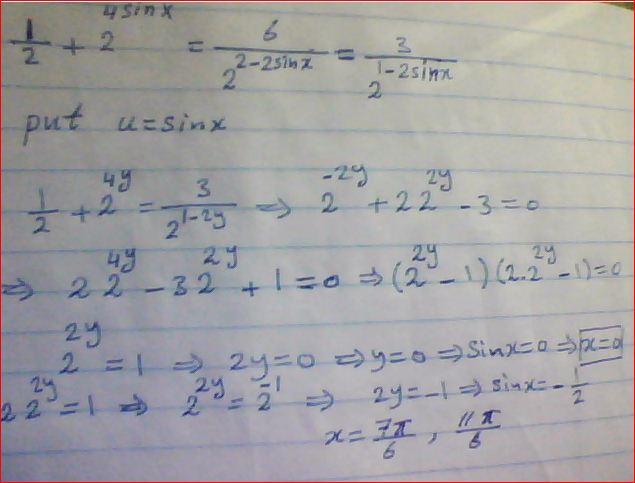 1/2 + 2^(4sinx) = 6/2^(2-2sinx) = 3/2^(1-2sinx)
put u=sinx
1/2 + 2^(4y) = 3/2^(1-2y) ⇒ 2^(-2y) + 2 2^(2y) - 3 = 0
⇒ 2 2^(4y) - 3 2^(2y) + 1 = 0 ⇒ (2^(2y) - 1)(2.2^(2y) - 1) = 0
2^(2y) = 1 ⇒ 2y=0 ⇒ y=0 ⇒ sinx=0 ⇒ x=0
2 2^(2y) = 1 ⇒ 2^(2y) = 2^(-1) ⇒ 2y=-1 ⇒ sinx=-1/2
x = 7π/6 , 11π/6